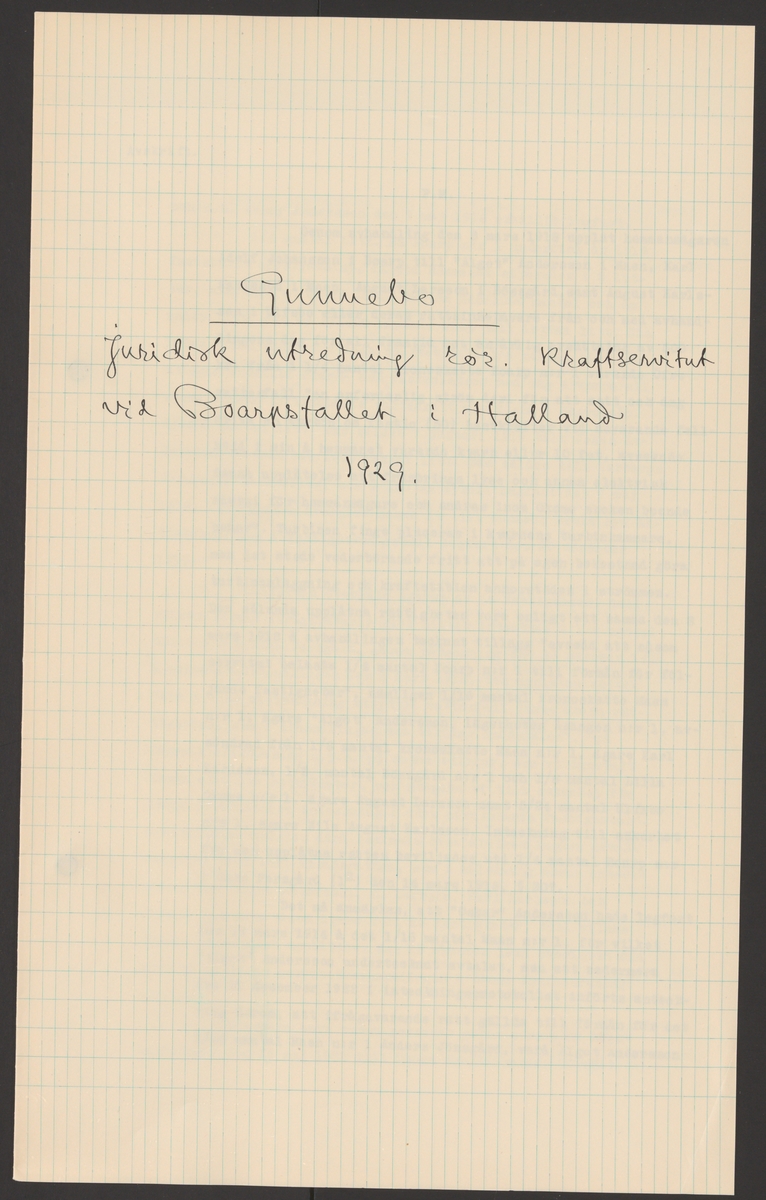 Gunnebo
Juridisk utredning rör. Kraftservitut
vid Boarpsfallet i Halland
1929.